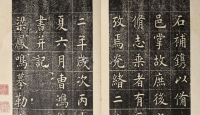 石補鐫以備
邑掌故庶後
脩志乘者有
攷焉光緒二
二年歲次丙
夏六月曹鴻
書并記
梁鳳鳴摹勒